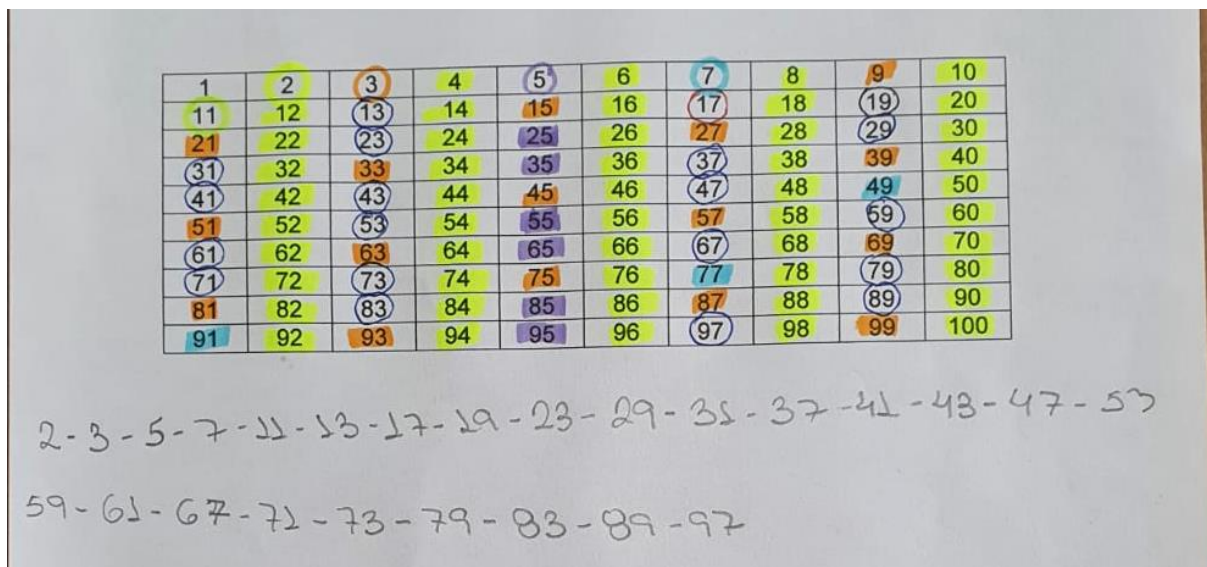 1 2 3 4 5 6 7 8 9 10
11 12 13 14 15 16 17 18 19 20
21 22 23 24 25 26 27 28 29 30
31 32 33 34 35 36 37 38 39 40
41 42 43 44 45 46 47 48 49 50
51 52 53 54 55 56 57 58 59 60
61 62 63 64 65 66 67 68 69 70
71 72 73 74 75 76 77 78 79 80
81 82 83 84 85 86 87 88 89 90
91 92 93 94 95 96 97 98 99 100
2-3-5-7-11-13-17-19-23-29-31-37-41-43-47-53
59-61-67-71-73-79-83-89-97